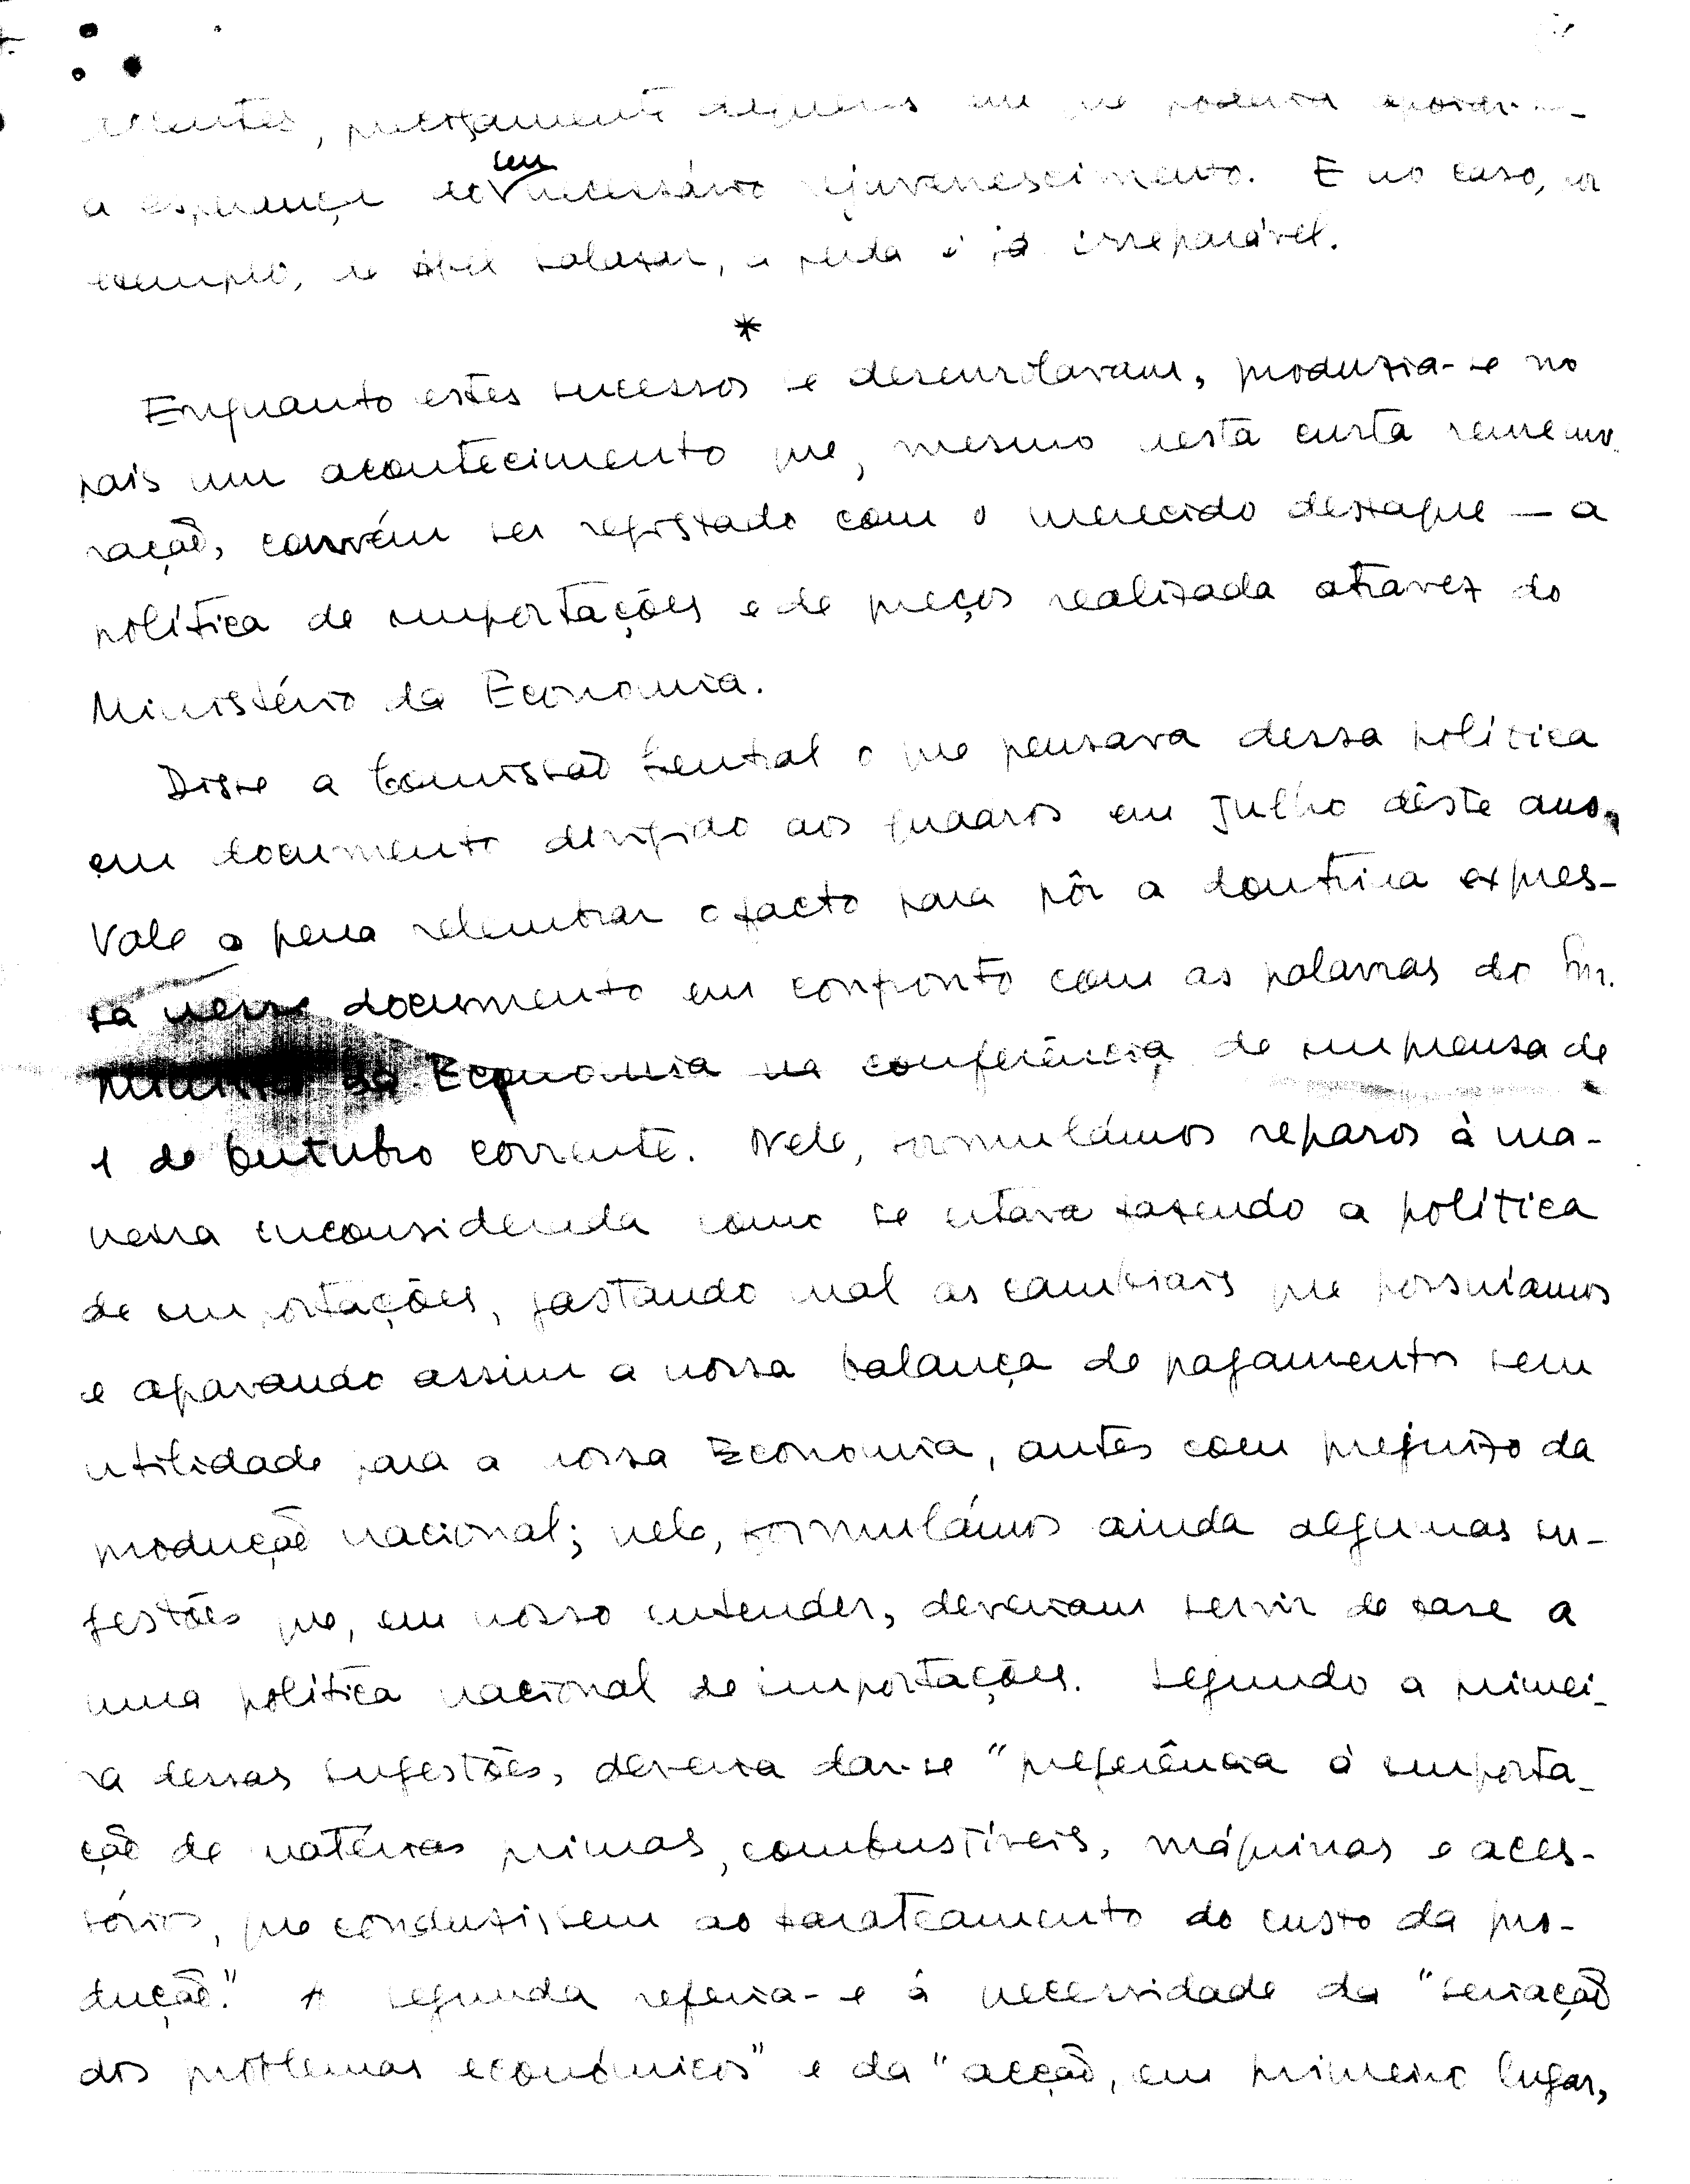 , precisamente daqueles em que poderia
a esperança do seu necessário rejuvenescimento. E no caso, por
exemplo, de Abel Salazar, a perda é já irreparável.
*
Enquanto estes sucessos se desenrolavam, produzia-se no
país um acontecimento que, mesmo nesta curta rememo-
ração, convém ser registado com o merecido destaque — a
política de importações e de preços realizada atravez do
Ministério da Economia.
Disse a Comissão Central o que pensava dessa política
em documento dirigido aos quadros em Julho dêste ano.
Vale a pena relembrar o facto para pôr a doutrina expres-
sa nesse documento em confronto com as palavras do Snr.
Ministro da Economia na conferência de imprensa de
1 de Outubro corrente. Nele, formulámos reparos à ma-
neira inconsiderada como se estava fazendo a política
de importações, gastando mal as cambiais que possuíamos
e agravando assim a nossa balança de pagamentos sem
utilidade para a nossa Economia, antes com prejuizo da
produção nacional; nele, formulámos ainda algumas su-
gestões que, em nosso entender, deveriam servir de base a
uma política nacional de importações. Segundo a primei-
ra dessas sugestões, deveria dar-se "preferência à importa-
ção de matérias primas, combustíveis, máquinas e aces-
sórios, que conduzissem ao barateamento do custo da pro-
dução." A segunda referia-se à necessidade da "seriação
dos problemas económicos" e da "acção, em primeiro lugar,